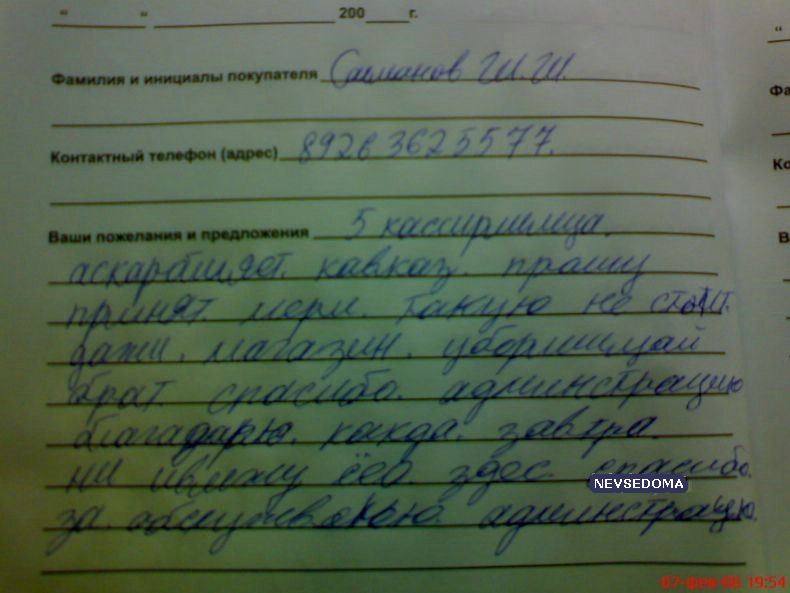 “ ” 200 г.
Фамилия и инициалы покупателя Салманов Ш.Ш.
Контактный телефон (адрес) 89263625577.
Ваши пожелания и предложения 5 кассиршица.
аскарбляет. кавказ. прашу
принят мери. такую не стоит.
дажи. магазин. уборшицай
брат. спасибо. админстрацию
благадарю. какда. завтра.
ни увижу ёёо. здес. спасибо.
за. абслуживанью. админстрацию.
NEVSEDOMA
07-фев-08 19:54
“
Фа
Ко
В